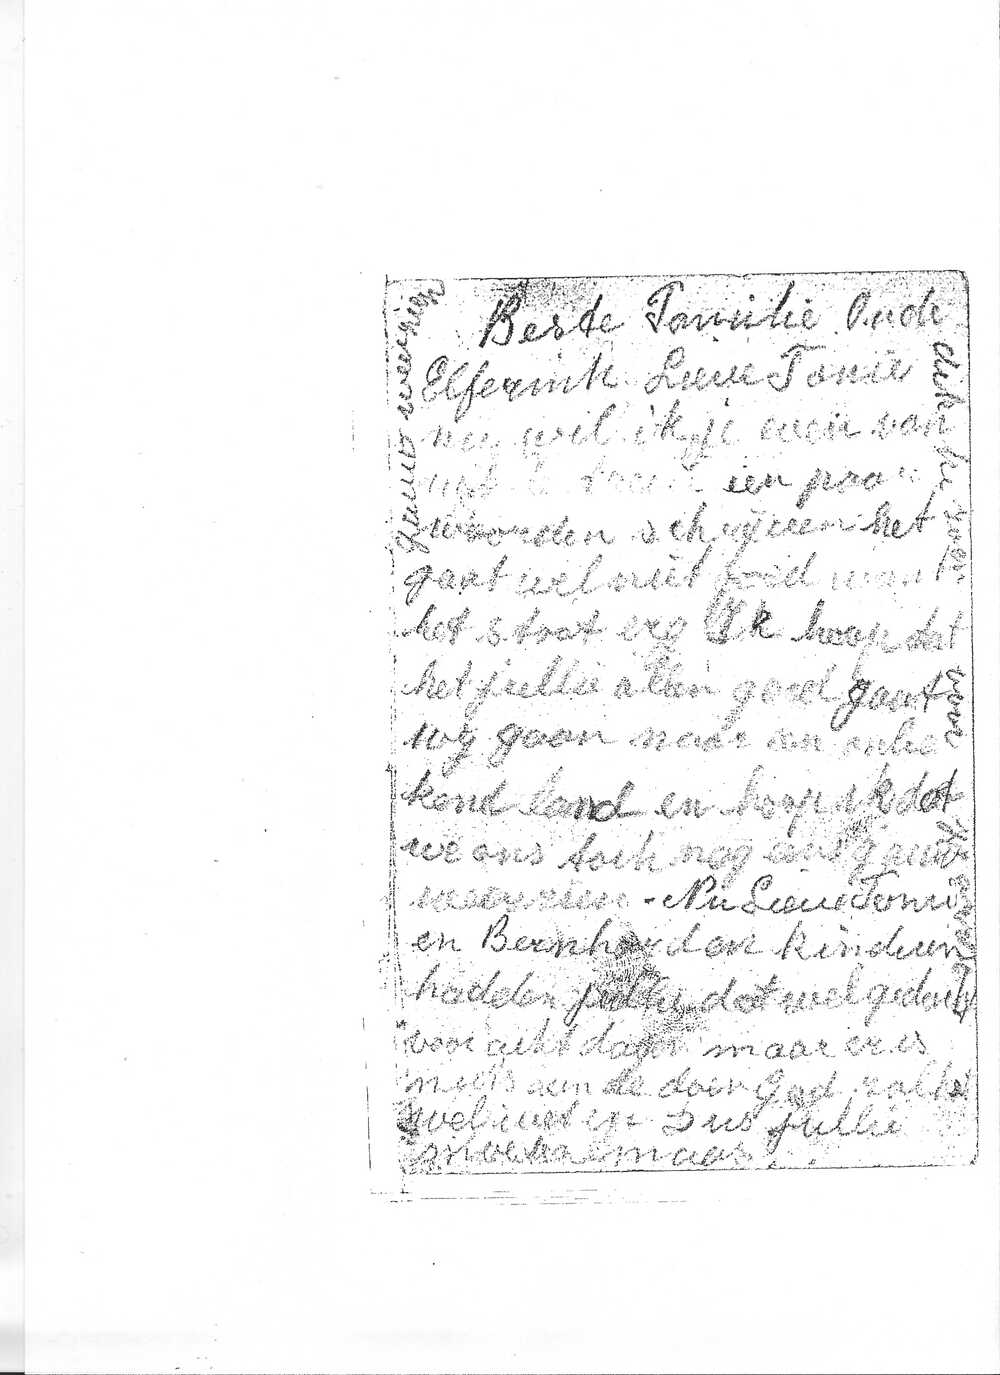 Beste Familie Oude
Elferink Lieve Tonie
nu wil ik je even van
uit de een paar
woorden schrijven het
gaat wel niet goed want
het staat erg Ik hoop dat
het jullie allen goed gaat
wij gaan naar een onbe
kend land en hoop ik dat
we ons toch nog eens gauw
weerzien - Nu Lieve Tonie
en Bernhard en kinderen
hadden jullie dat wel gedacht
voor acht dagen maar er is
niets aan te doen God zal het
wel weten Dus jullie
maar
gauw weerzien